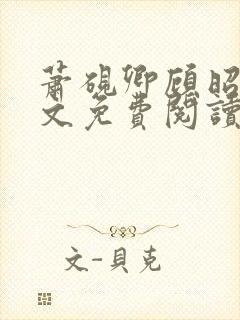 蕭硯卿顧昭
文免費閱讀
文-貝克